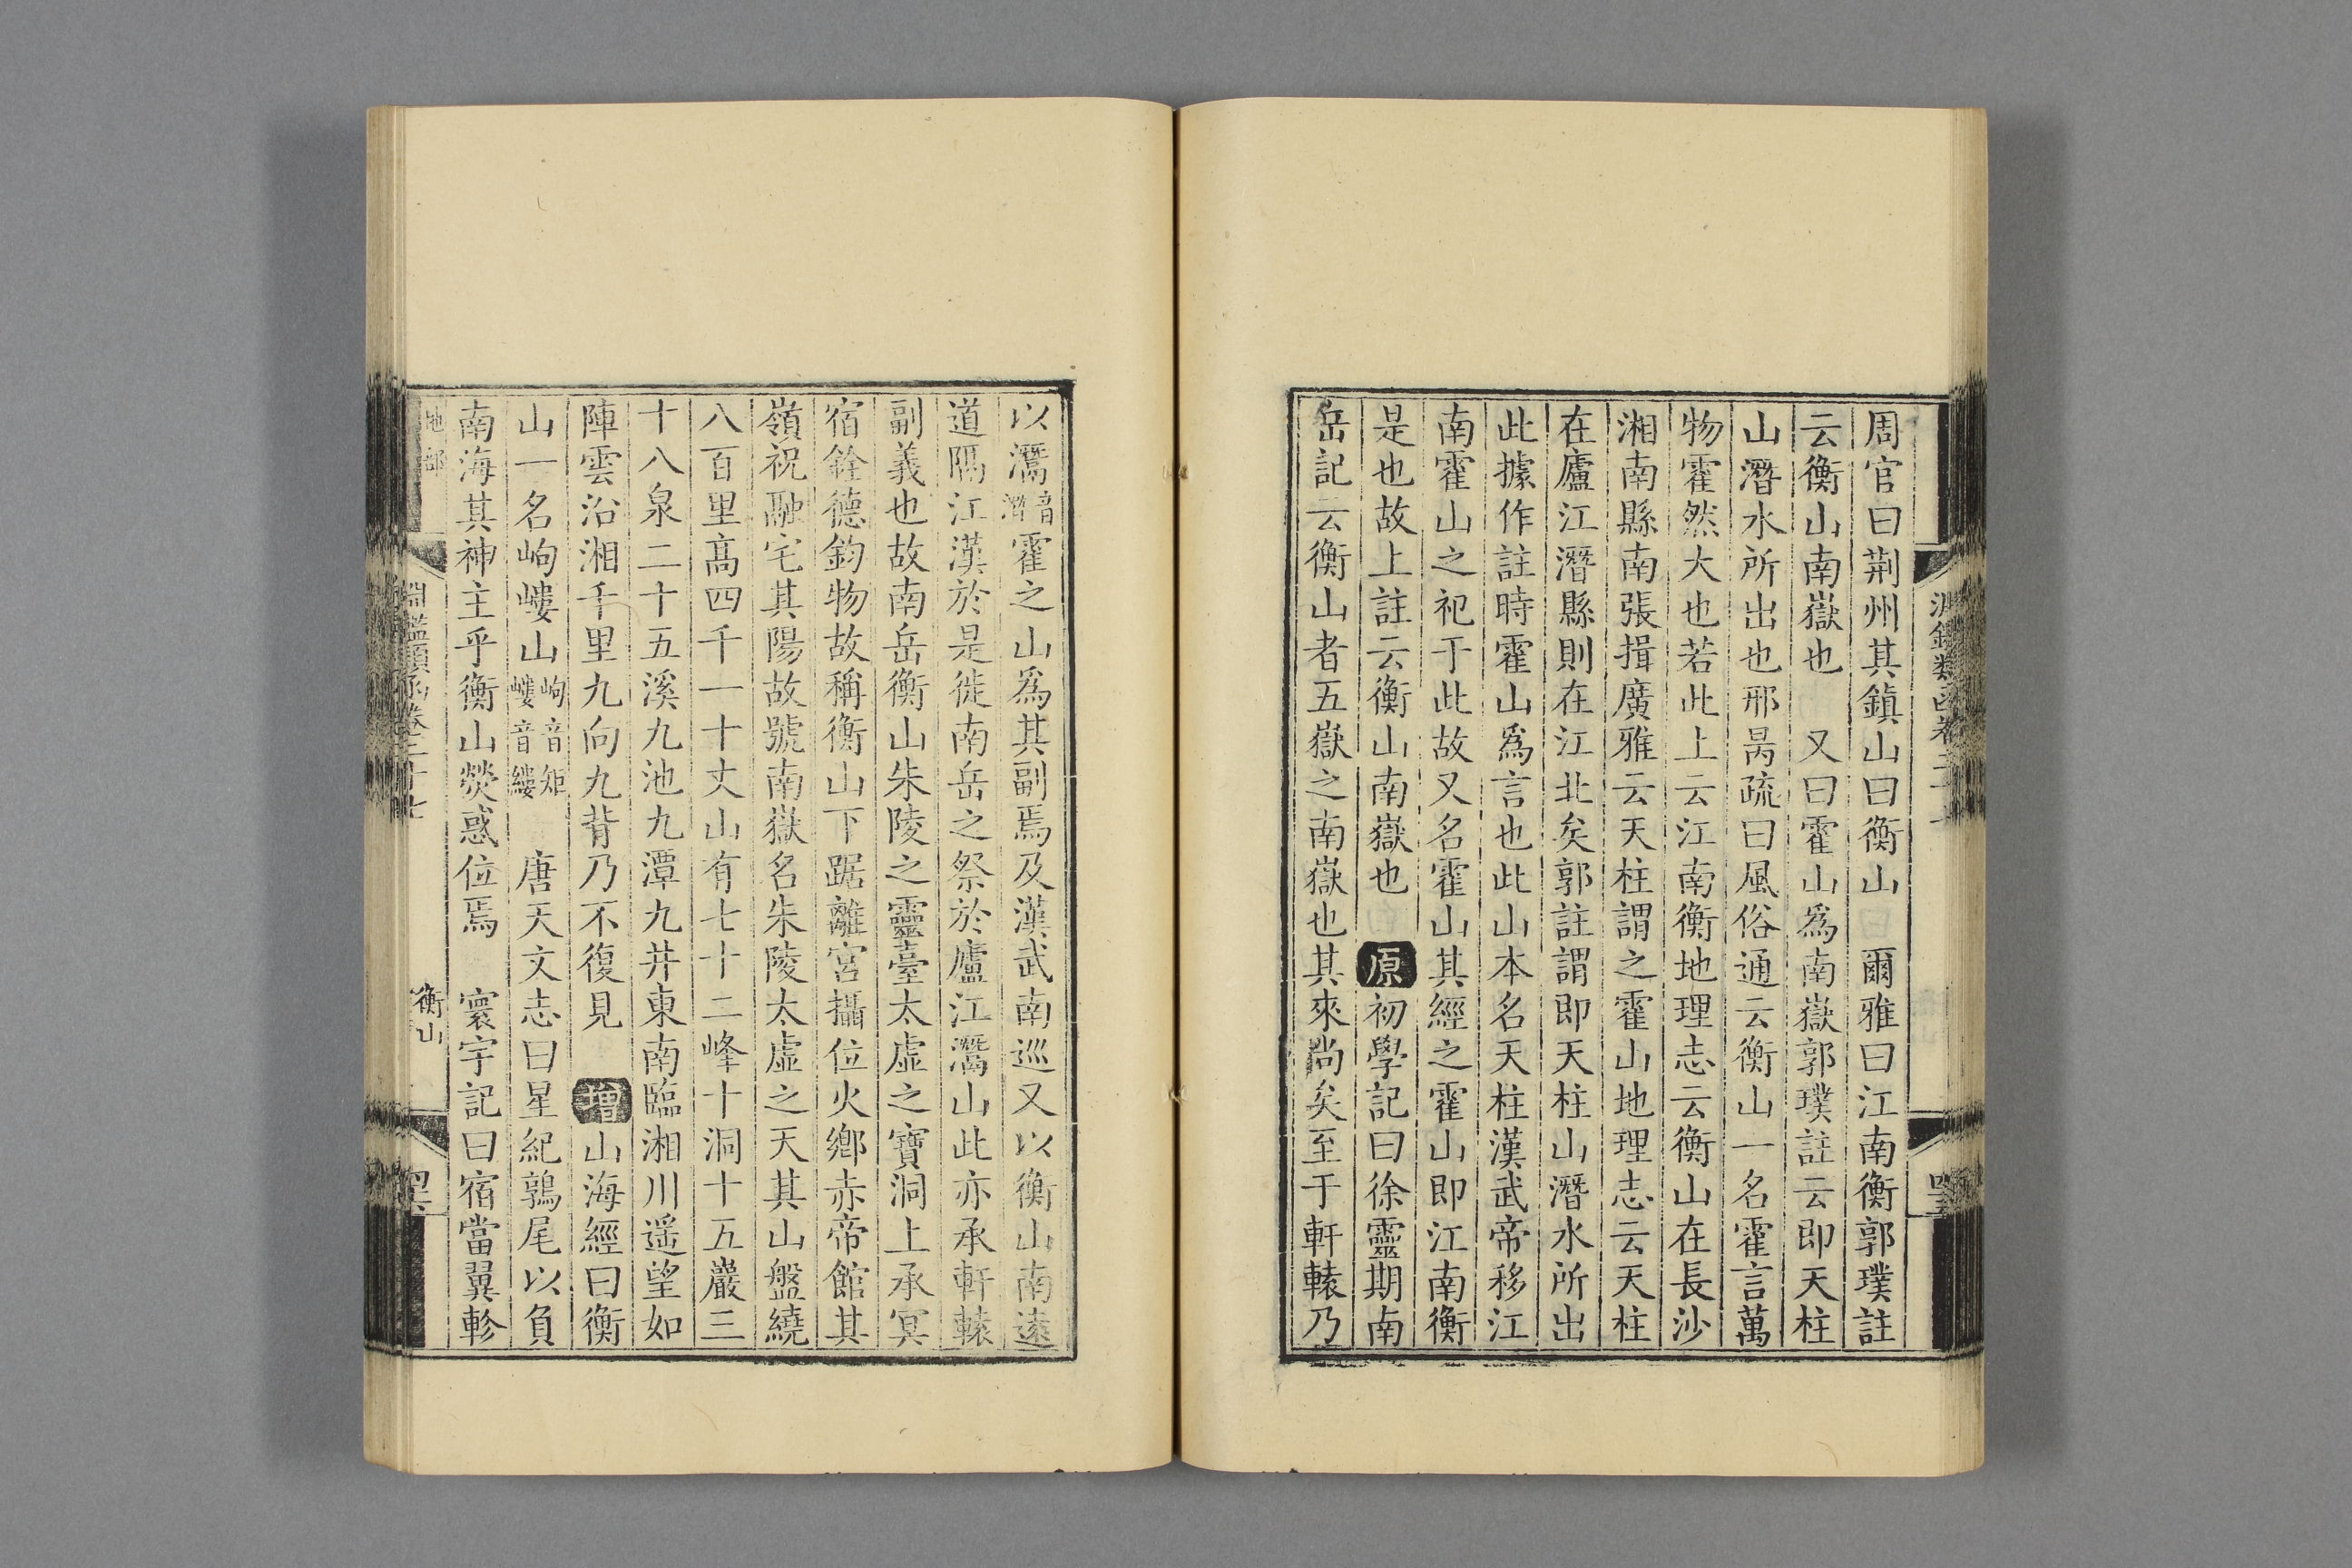 周官曰荆州其鎮山曰衡山　爾雅曰江南衡郭璞註
云衡山南嶽也　又曰霍山爲南嶽郭璞註云即天柱
山潛水所出也邢昺疏曰風俗通云衡山一名霍言萬
物霍然大也若此上云江南衡地理志云衡山在長沙
湘南縣南張揖廣雅云天柱謂之霍山地理志云天柱
在廬江潛縣則在江北矣郭註謂即天柱山潛水所出
此據作註時霍山爲言也此山本名天柱漢武帝移江
南霍山之祀于此故又名霍山其經之霍山即江南衡
是也故上註云衡山南嶽也　原初學記曰徐靈期南
岳記云衡山者五嶽之南嶽也其來尚矣至于軒轅乃
以灊音潛霍之山爲其副焉及漢武南巡又以衡山南遠
道隔江漢於是徙南岳之祭於廬江灊山此亦承軒轅
副義也故南岳衡山朱陵之靈臺太虛之寶洞上承冥
宿銓德鈞物故稱衡山下踞離宮攝位火鄉赤帝館其
嶺祝融宅其陽故號南嶽名朱陵太虛之天其山盤繞
八百里高四千一十丈山有七十二峰十洞十五巖三
十八泉二十五溪九池九潭九井東南臨湘川遥望如
陣雲沿湘千里九向九背乃不復見　增山海經曰衡
山一名岣嶁山岣音矩嶁音縷　唐天文志曰星紀鶉尾以負
南海其神主乎衡山熒惑位焉　寰宇記曰宿當翼軫
地部
淵鑑類函卷二十七
衡山